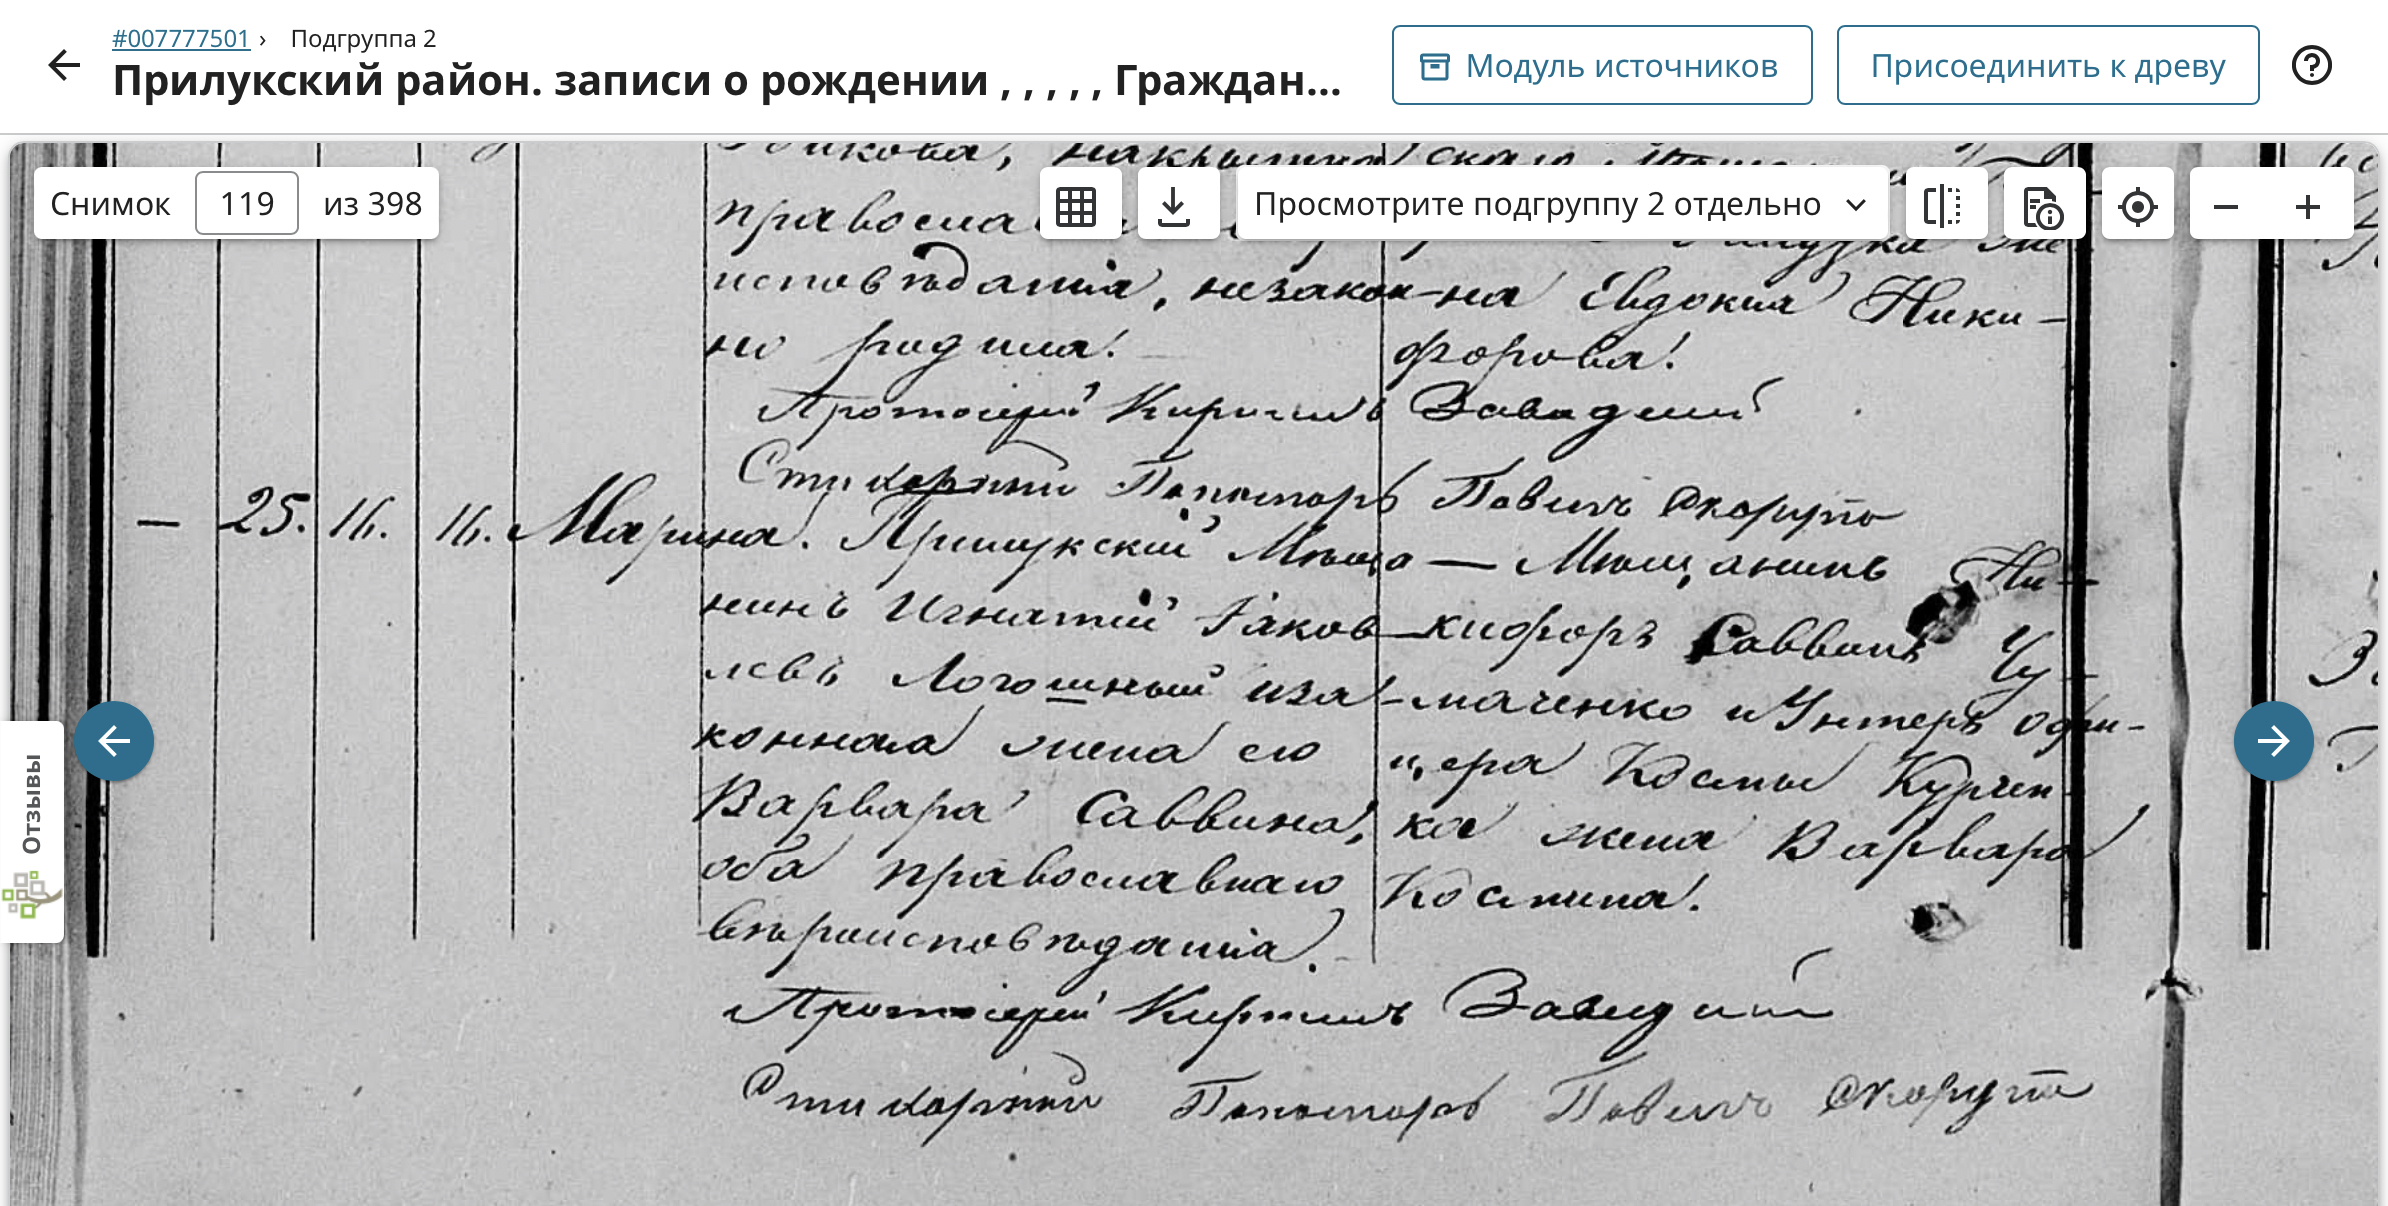 #007777501 › Подгруппа 2
Прилукский район. записи о рождении , , , , , Граждан...
Модуль источников
Присоединить к древу
Снимок 119 из 398
Просмотрите подгруппу 2 отдельно
Отзывы
исповѣданія, незакон-
но родила.
на Евдокия Ники-
форова.
Протоіерей Кириллъ Завадскій
Стихарный Пономарь Павелъ Скорута
— 25. 16. 16. Марина.
Прилукскій Мѣща-
нинъ Игнатій Іаков-
левъ Логошный иза-
конная жена его
Варвара Саввина,
оба православнаго
вѣроисповѣданія.
Мѣщанинъ Ни-
кифоръ Саввинъ Чу-
маченко и Унтеръ офи-
цера Космы Курчен-
ка жена Варвара
Космина.
Протоіерей Кириллъ Завадскій
Стихарный Пономарь Павелъ Скорута